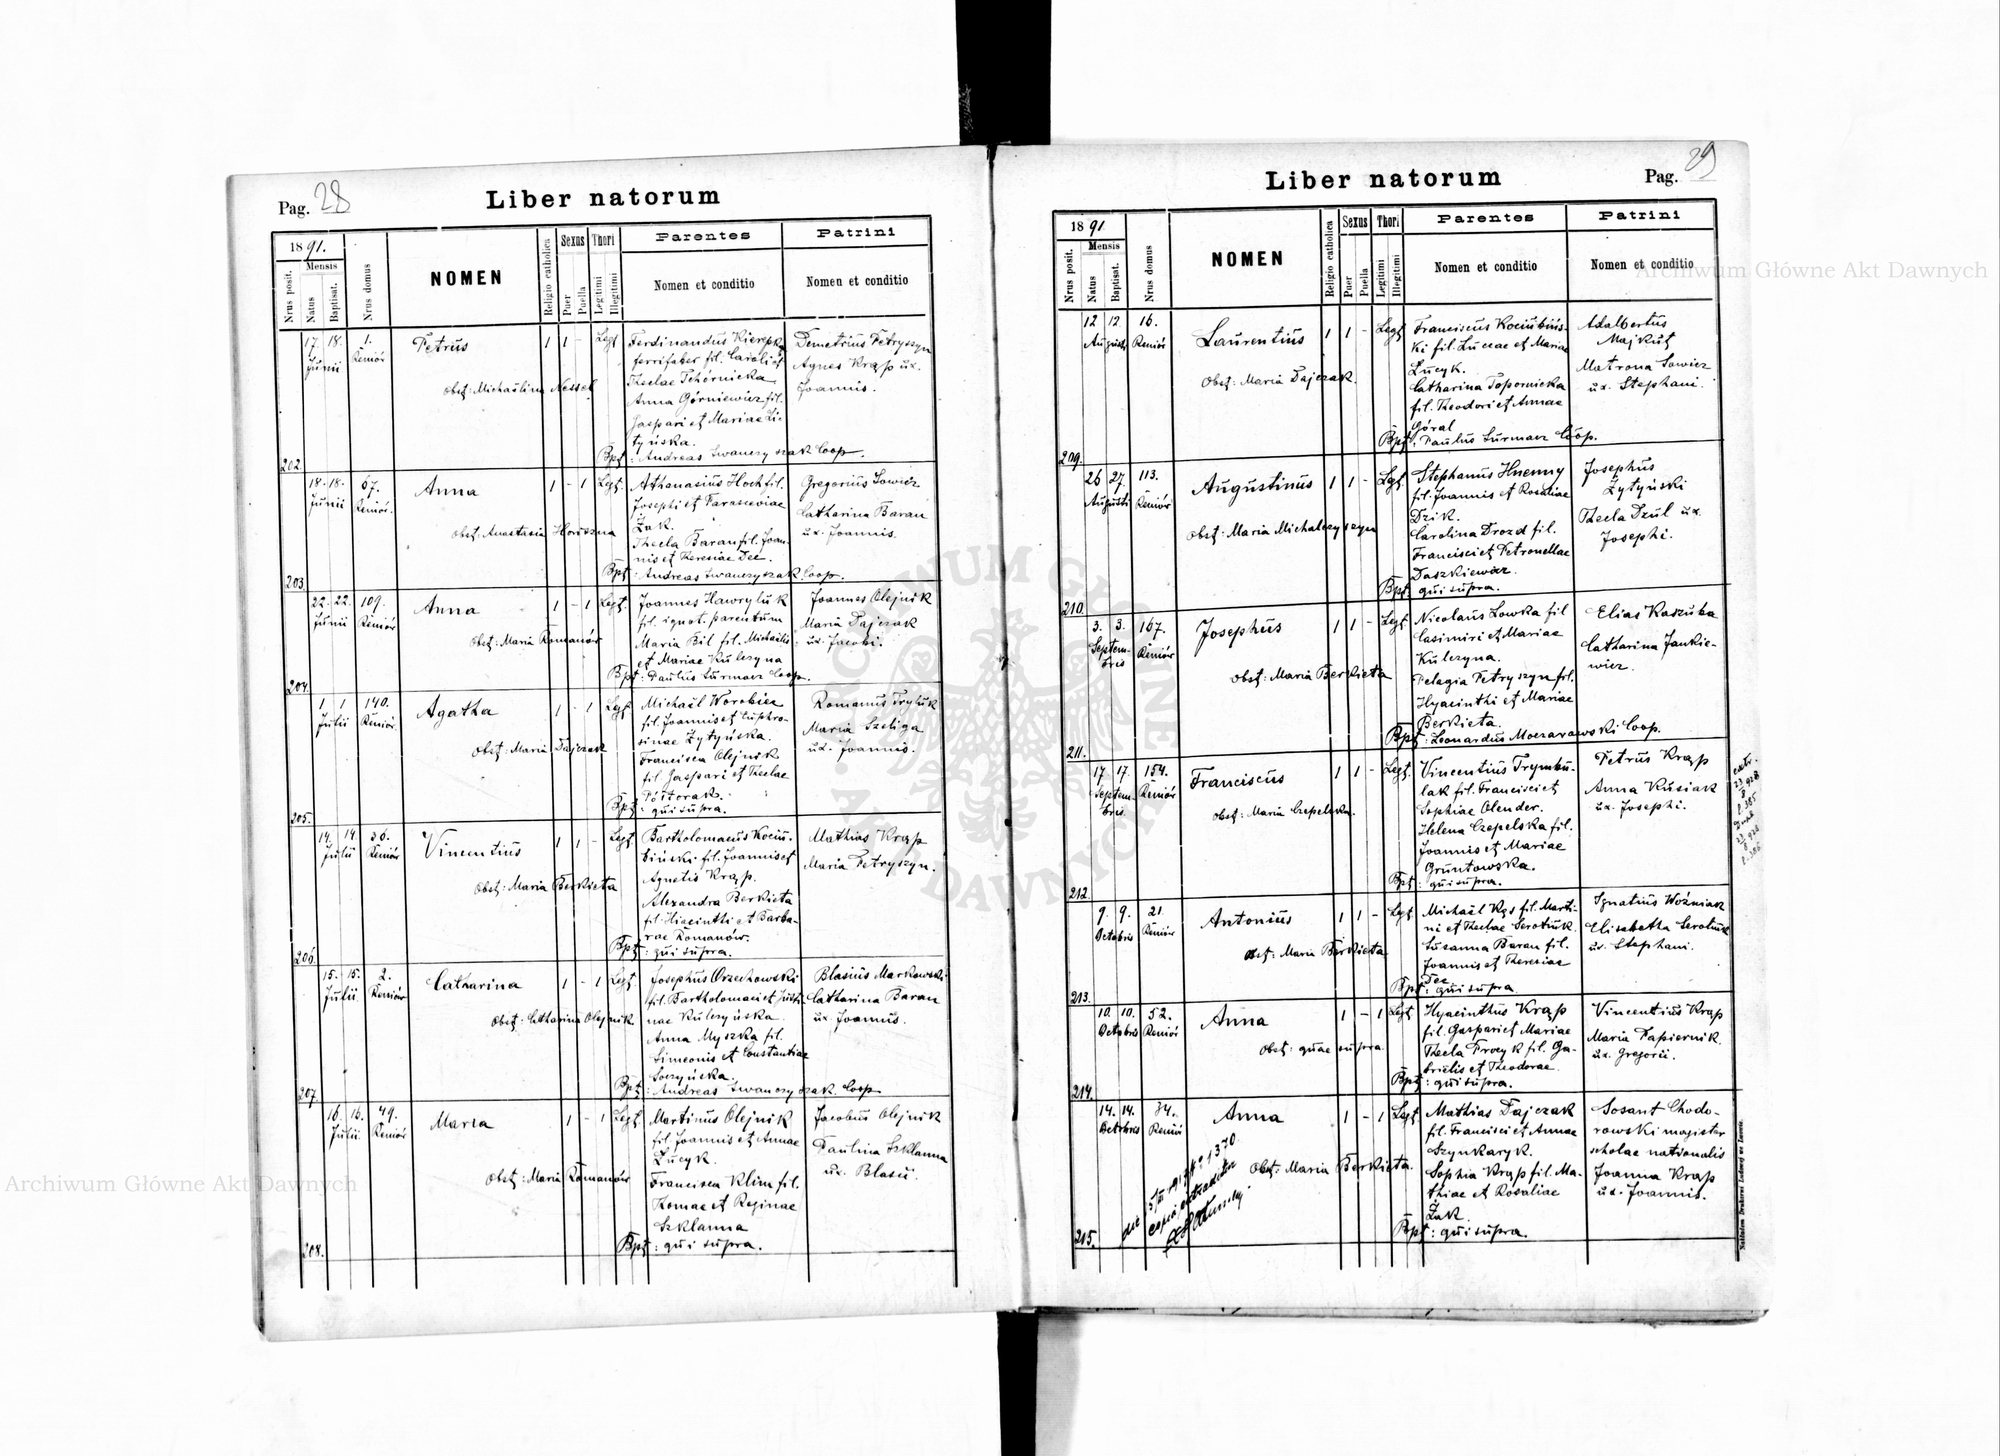 Pag. 28
Liber natorum
1891.
Nrus posit.
Mensis
Natus
Baptisat.
Nrus domus
NOMEN
Religio catholica
Sexus
Puer
Puella
Thori
Legitimi
Illegitimi
Parentes
Nomen et conditio
Patrini
Nomen et conditio
202.
17. 18. Junii
1. Reniów
Petrus
Obst: Michaëlina Nessel
1 1 - Legt
Ferdinandus Kierepka
ferrifaber fil. Caroli et
Theclae Tchórnicka
Anna Górniewicz fil.
Gaspari et Mariae Li-
tyńska.
Bpt: Andreas Iwanczyszak Coop.
Demetrius Petryszyn
Agnes Krąp ux.
Joannis.
203.
18. 18. Junii
67. Reniów.
Anna
Obst: Anastasia Horiszna
1 - 1 Legt.
Athanasius Hoch fil.
Josephi et Parasceviae
Żak.
Thecla Baran fil. Joan-
nis et Theresiae Dec.
Bpt: Andreas Iwanczyszak Coop.
Gregorius Sowicz
Catharina Baran
ux. Joannis.
204.
22. 22. Junii
109. Reniów
Anna
Obst: Maria Romanów
1 - 1 Legt.
Joannes Hawryluk
fil. ignot. parentum
Maria Bil fil. Michaëlis
et Mariae Kulczyna
Bpt: Paulus Surmacz Coop.
Joannes Olejnik
Maria Dajczak
ux. Jacobi.
205.
1 1 Julii
140. Reniów.
Agatha
Obst: Maria Dajczak
1 - 1 Legt.
Michaël Worobiec
fil. Joannis et Euphro-
sinae Żytyńska.
Francisca Olejnik
fil. Gaspari et Theclae
Półtorak.
Bpt: qui supra.
Romanus Tryluk
Maria Szeliga
ux. Joannis.
206.
14. 14 Julii
36. Reniów
Vincentius
Obst: Maria Berkieta
1 1 - Legt.
Bartholomaeus Kociu-
biński fil. Joannis et
Agnetis Krąp.
Alexandra Berkieta
fil. Hiacinthi et Barba-
rae Romanów.
Bpt: qui supra.
Mathias Krąp
Maria Petryszyn.
207.
15. 15. Julii
2. Reniów
Catharina
Obst: Catharina Olejnik
1 - 1 Legt.
Josephus Orzechowski
fil. Bartholomaei et Justi-
nae Kulczyńska.
Anna Myszka fil.
Simeonis et Constantiae
Soczyńska.
Bpt: Andreas Iwanczyszak. Coop
Blasius Markowski
Catharina Baran
ux. Joannis.
208.
16. 16. Julii
49. Reniów
Maria
Obst: Maria Romanów
1 - 1 Legt.
Martinus Olejnik
fil. Joannis et Annae
Łucyk.
Francisca Klim fil.
Thomae et Reginae
Szklanna
Bpt: qui supra.
Jacobus Olejnik
Paulina Szklanna
ux. Blasii.
Pag. 29
Liber natorum
1891
Nrus posit.
Mensis
Natus
Baptisat.
Nrus domus
NOMEN
Religio catholica
Sexus
Puer
Puella
Thori
Legitimi
Illegitimi
Parentes
Nomen et conditio
Patrini
Nomen et conditio
209.
12 12 Augusti
16. Reniów
Laurentius
Obst: Maria Dajczak.
1 1 - Legt.
Franciscus Kociubińs-
ki fil. Lucae et Mariae
Łucyk.
Catharina Topornicka
fil. Theodori et Annae
Góral
Bpt: Paulus Surmacz Coop.
Adalbertus
Majkut
Matrona Sowicz
ux. Stephani.
210.
26 27. Augusti
113. Reniów
Augustinus
Obst: Maria Michalczyszyn
1 1 - Legt.
Stephanus Hnenny
fil. Joannis et Rosaliae
Dzik.
Carolina Drozd fil.
Francisci et Petronellae
Daszkiewicz.
Bpt: qui supra.
Josephus
Żytyński
Thecla Dzul ux.
Josephi.
211.
3. 3. Septem-
bris
167. Reniów
Josephus
Obst: Maria Berkieta
1 1 - Legt.
Nicolaus Lowka fil
Casimiri et Mariae
Kulczyna.
Pelagia Petryszyn fil.
Hyacinthi et Mariae
Berkieta.
Bpt: Leonardus Moczarowski Coop.
Elias Kaszuba
Catharina Jankie-
wicz.
212.
17 17. Septem-
bris
154. Reniów
Franciscus
Obst: Maria Czepelska.
1 1 - Legt.
Vincentius Trymbu-
lak fil. Francisci et
Sophiae Olender.
Helena Czepelska fil.
Joannis et Mariae
Gruntowska.
Bpt: qui supra.
Petrus Krąp
Anna Kusiak
ux. Josephi.
213.
9. 9. Octobris
21. Reniów
Antonius
Obst: Maria Berkieta
1 1 - Legt
Michaël Kęs fil. Marti-
ni et Theclae Serotiuk.
Susanna Baran fil.
Joannis et Theresiae
Dec.
Bpt: qui supra
Ignatius Woźniak
Elisabetha Serotiuk
ux. Stephani.
214.
10. 10. Octobris
52. Reniów
Anna
Obst: quae supra.
1 - 1 Legt
Hyacinthus Krąp
fil. Gaspari et Mariae
Thecla Procyk fil. Ga-
brielis et Theodorae.
Bpt: qui supra.
Vincentius Krąp
Maria Papiernik.
ux. Gregorii.
215.
14. 14. Octobris
34. Reniów
Anna
Obst: Maria Berkieta.
1 - 1 Legt
Mathias Dajczak
fil. Francisci et Annae
Szynkaryk.
Sophia Krąp fil. Ma-
thiae et Rosaliae
Żak.
Bpt: qui supra.
Sosant Chodo-
rowski magister
scholae nationalis
Joanna Krąp
ux. Joannis.
Nakładem Drukarni Ludowej we Lwowie.
Archiwum Główne Akt Dawnych
Archiwum Główne Akt Dawnych
ARCHIWUM GŁÓWNE AKT DAWNYCH